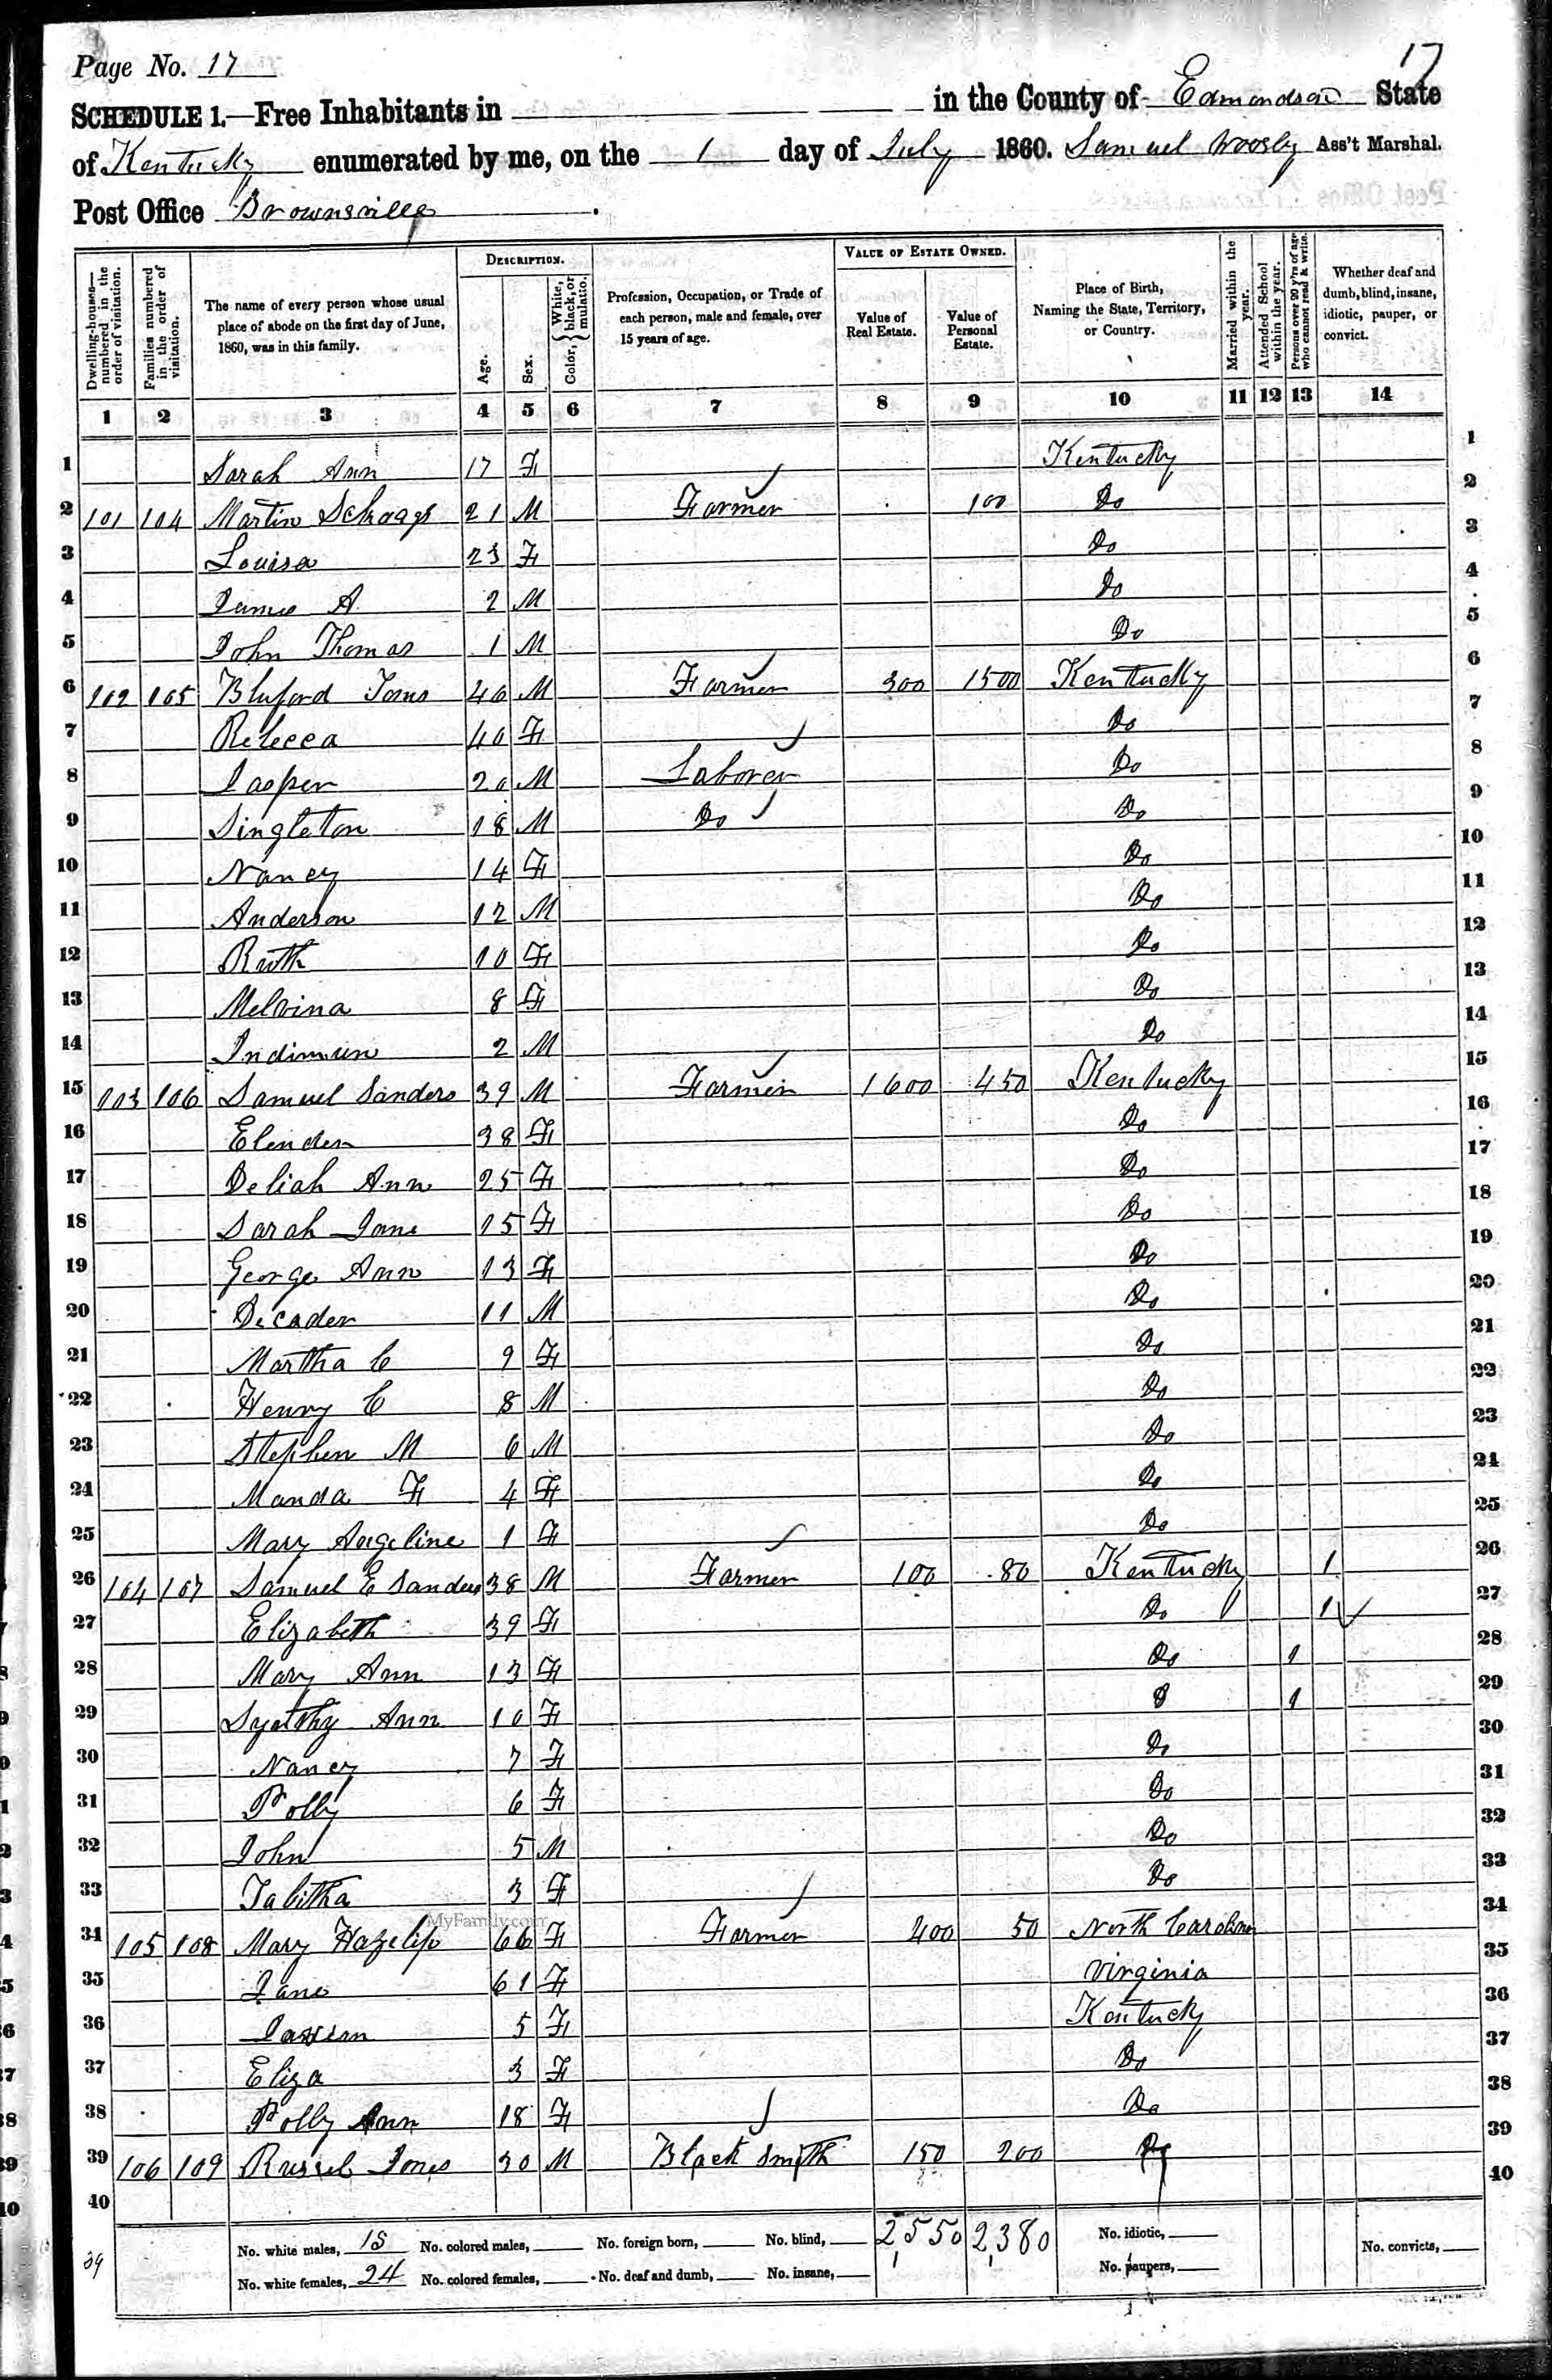 Page No. 17
17
SCHEDULE 1.—Free Inhabitants in in the County of Edmondson State
of Kentucky enumerated by me, on the 1 day of July 1860. Samuel Woosley Ass't Marshal.
Post Office Brownsville.
Dwelling-houses—numbered in the order of visitation.
Families numbered in the order of visitation.
The name of every person whose usual place of abode on the first day of June, 1860, was in this family.
DESCRIPTION.
Age.
Sex.
Color, { White, black, or mulatto.
Profession, Occupation, or Trade of each person, male and female, over 15 years of age.
VALUE OF ESTATE OWNED.
Value of Real Estate.
Value of Personal Estate.
Place of Birth, Naming the State, Territory, or Country.
Married within the year.
Attended School within the year.
Persons over 20 y'rs of age who cannot read & write.
Whether deaf and dumb, blind, insane, idiotic, pauper, or convict.
1 2 3 4 5 6 7 8 9 10 11 12 13 14
1 Sarah Ann 17 F Kentucky 1
2 101 104 Martin Skaggs 21 M Farmer 100 Do 2
3 Louisa 23 F Do 3
4 James A 2 M Do 4
5 John Thomas 1 M Do 5
6 102 105 Bluford Jones 46 M Farmer 300 1500 Kentucky 6
7 Rebecca 40 F Do 7
8 Jasper 20 M Laborer Do 8
9 Singleton 18 M Do Do 9
10 Nancy 14 F Do 10
11 Anderson 12 M Do 11
12 Ruth 10 F Do 12
13 Melvina 8 F Do 13
14 2 M Do 14
15 103 106 Samuel Sanders 39 M Farmer 1600 450 Kentucky 15
16 Elender 38 F Do 16
17 Deliah Ann 25 F Do 17
18 Sarah Jane 15 F Do 18
19 George Ann 13 F Do 19
20 Decader 11 M Do 20
21 Martha C 9 F Do 21
22 Henry C 8 M Do 22
23 Stephen M 6 M Do 23
24 Manda F 4 F Do 24
25 Mary Angeline 1 F Do 25
26 104 107 Samuel E Sanders 38 M Farmer 100 80 Kentucky 1 26
27 Elizabeth 39 F Do 1 27
28 Mary Ann 13 F Do 1 28
29 Synthy Ann 10 F 1 29
30 Nancy 7 F Do 30
31 Polly 6 F Do 31
32 John 5 M Do 32
33 Tabitha 3 F Do 33
34 105 108 Mary Hazelip 66 F Farmer 400 50 North Carolina 34
35 Jane 61 F Virginia 35
36 5 F Kentucky 36
37 Eliza 3 F Do 37
38 Polly Ann 18 F Do 38
39 106 109 Russel Jones 30 M Black Smith 150 200 Do 39
40 40
39
No. white males, 15 No. colored males, No. foreign born, No. blind, 2,550 2,380 No. idiotic, No. convicts,
No. white females, 24 No. colored females, No. deaf and dumb, No. insane, No. paupers,
MyFamily.com